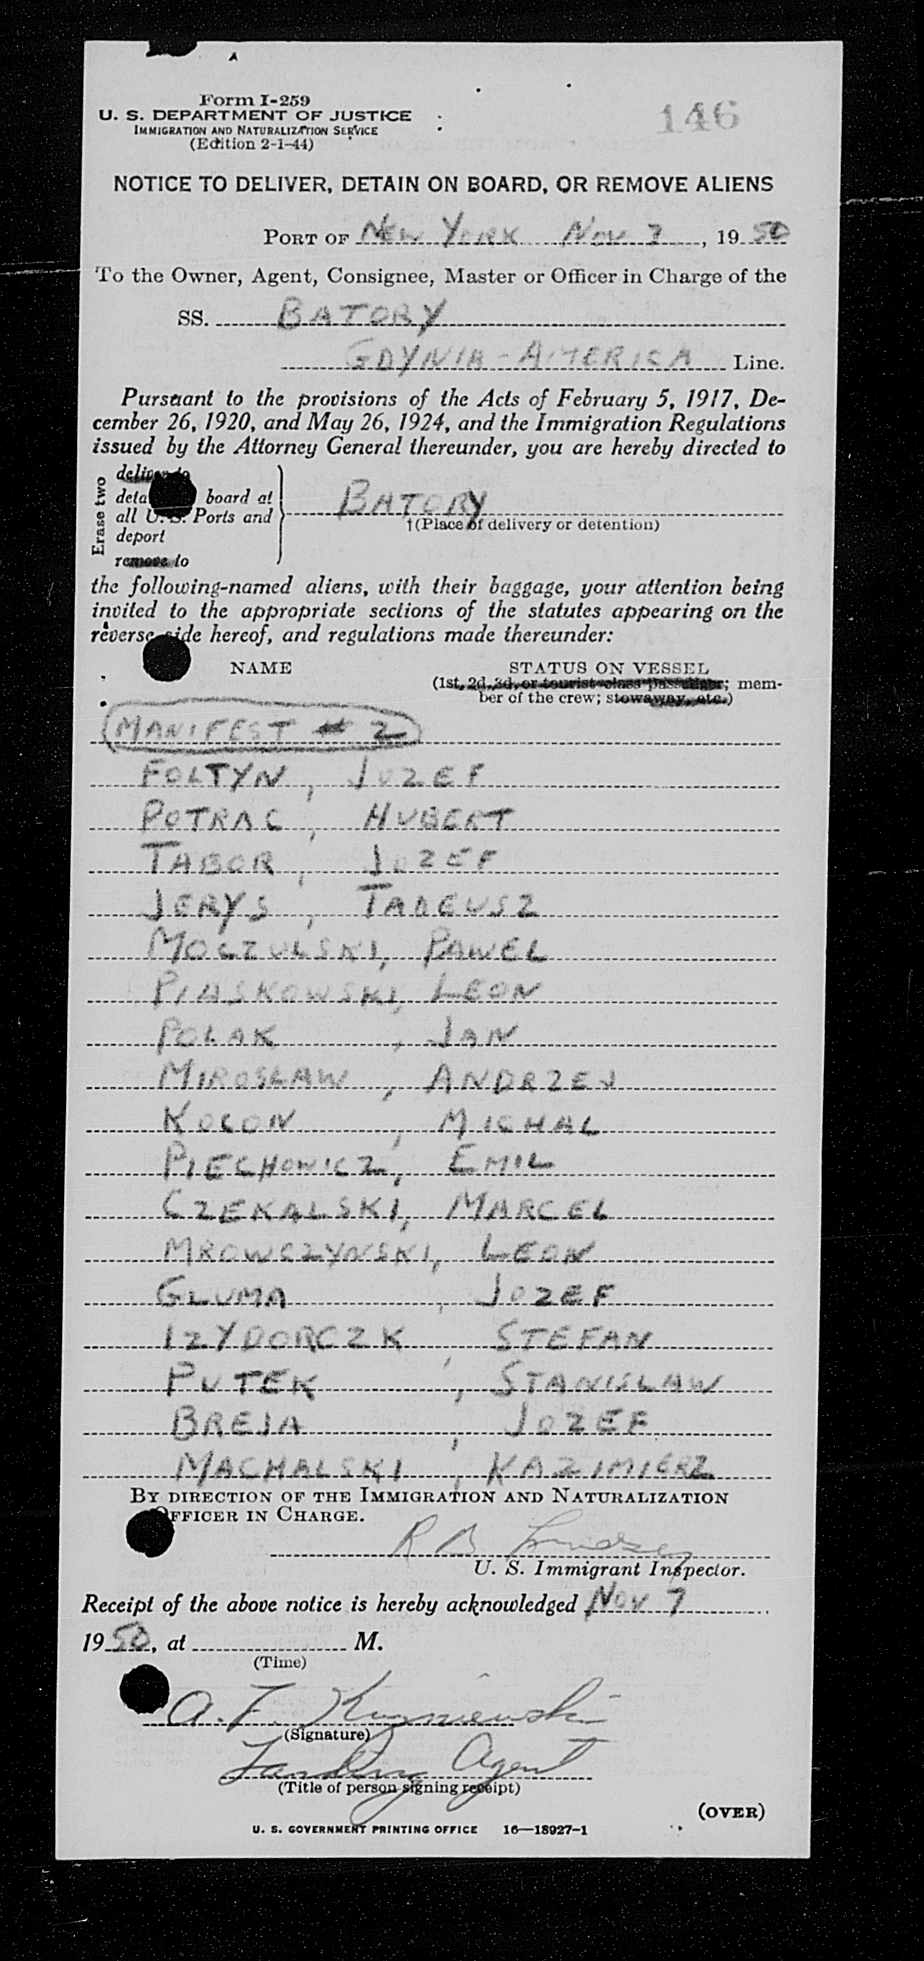 146
Form I-259
U. S. DEPARTMENT OF JUSTICE
IMMIGRATION AND NATURALIZATION SERVICE
(Edition 2-1-44)
NOTICE TO DELIVER, DETAIN ON BOARD, OR REMOVE ALIENS
PORT OF NEW YORK NOV 7, 1950
To the Owner, Agent, Consignee, Master or Officer in Charge of the
SS. BATORY
GDYNIA-AMERICA Line.
Pursuant to the provisions of the Acts of February 5, 1917, De-
cember 26, 1920, and May 26, 1924, and the Immigration Regulations
issued by the Attorney General thereunder, you are hereby directed to
Erase two
deliver to
deta board at
all U. S. Ports and
deport
remove to
BATORY
†(Place of delivery or detention)
the following-named aliens, with their baggage, your attention being
invited to the appropriate sections of the statutes appearing on the
reverse side hereof, and regulations made thereunder:
NAME STATUS ON VESSEL
(1st, 2d, 3d, or tourist class passenger; mem-
ber of the crew; stowaway, etc.)
MANIFEST # 2
FOLTYN, JOZEF
POTRAC, HUBERT
TABOR, JOZEF
JERYS, TADEUSZ
MOCZULSKI, PAWEL
PIASKOWSKI, LEON
POLAK, JAN
MIROSLAW, ANDRZEJ
KOCON, MICHAL
PIECHOWICZ, EMIL
CZEKALSKI, MARCEL
MROWCZYNSKI, LEON
GLUMA, JOZEF
IZYDORCZK, STEFAN
PUTEK, STANISLAW
BREJA, JOZEF
MACHALSKI, KAZIMIERZ
BY DIRECTION OF THE IMMIGRATION AND NATURALIZATION
OFFICER IN CHARGE.
R B Lindsey
U. S. Immigrant Inspector.
Receipt of the above notice is hereby acknowledged NOV 7
1950, at M.
(Time)
A. F. Kuzniewski
(Signature)
Landing Agent
(Title of person signing receipt)
(OVER)
U. S. GOVERNMENT PRINTING OFFICE 16—18927-1